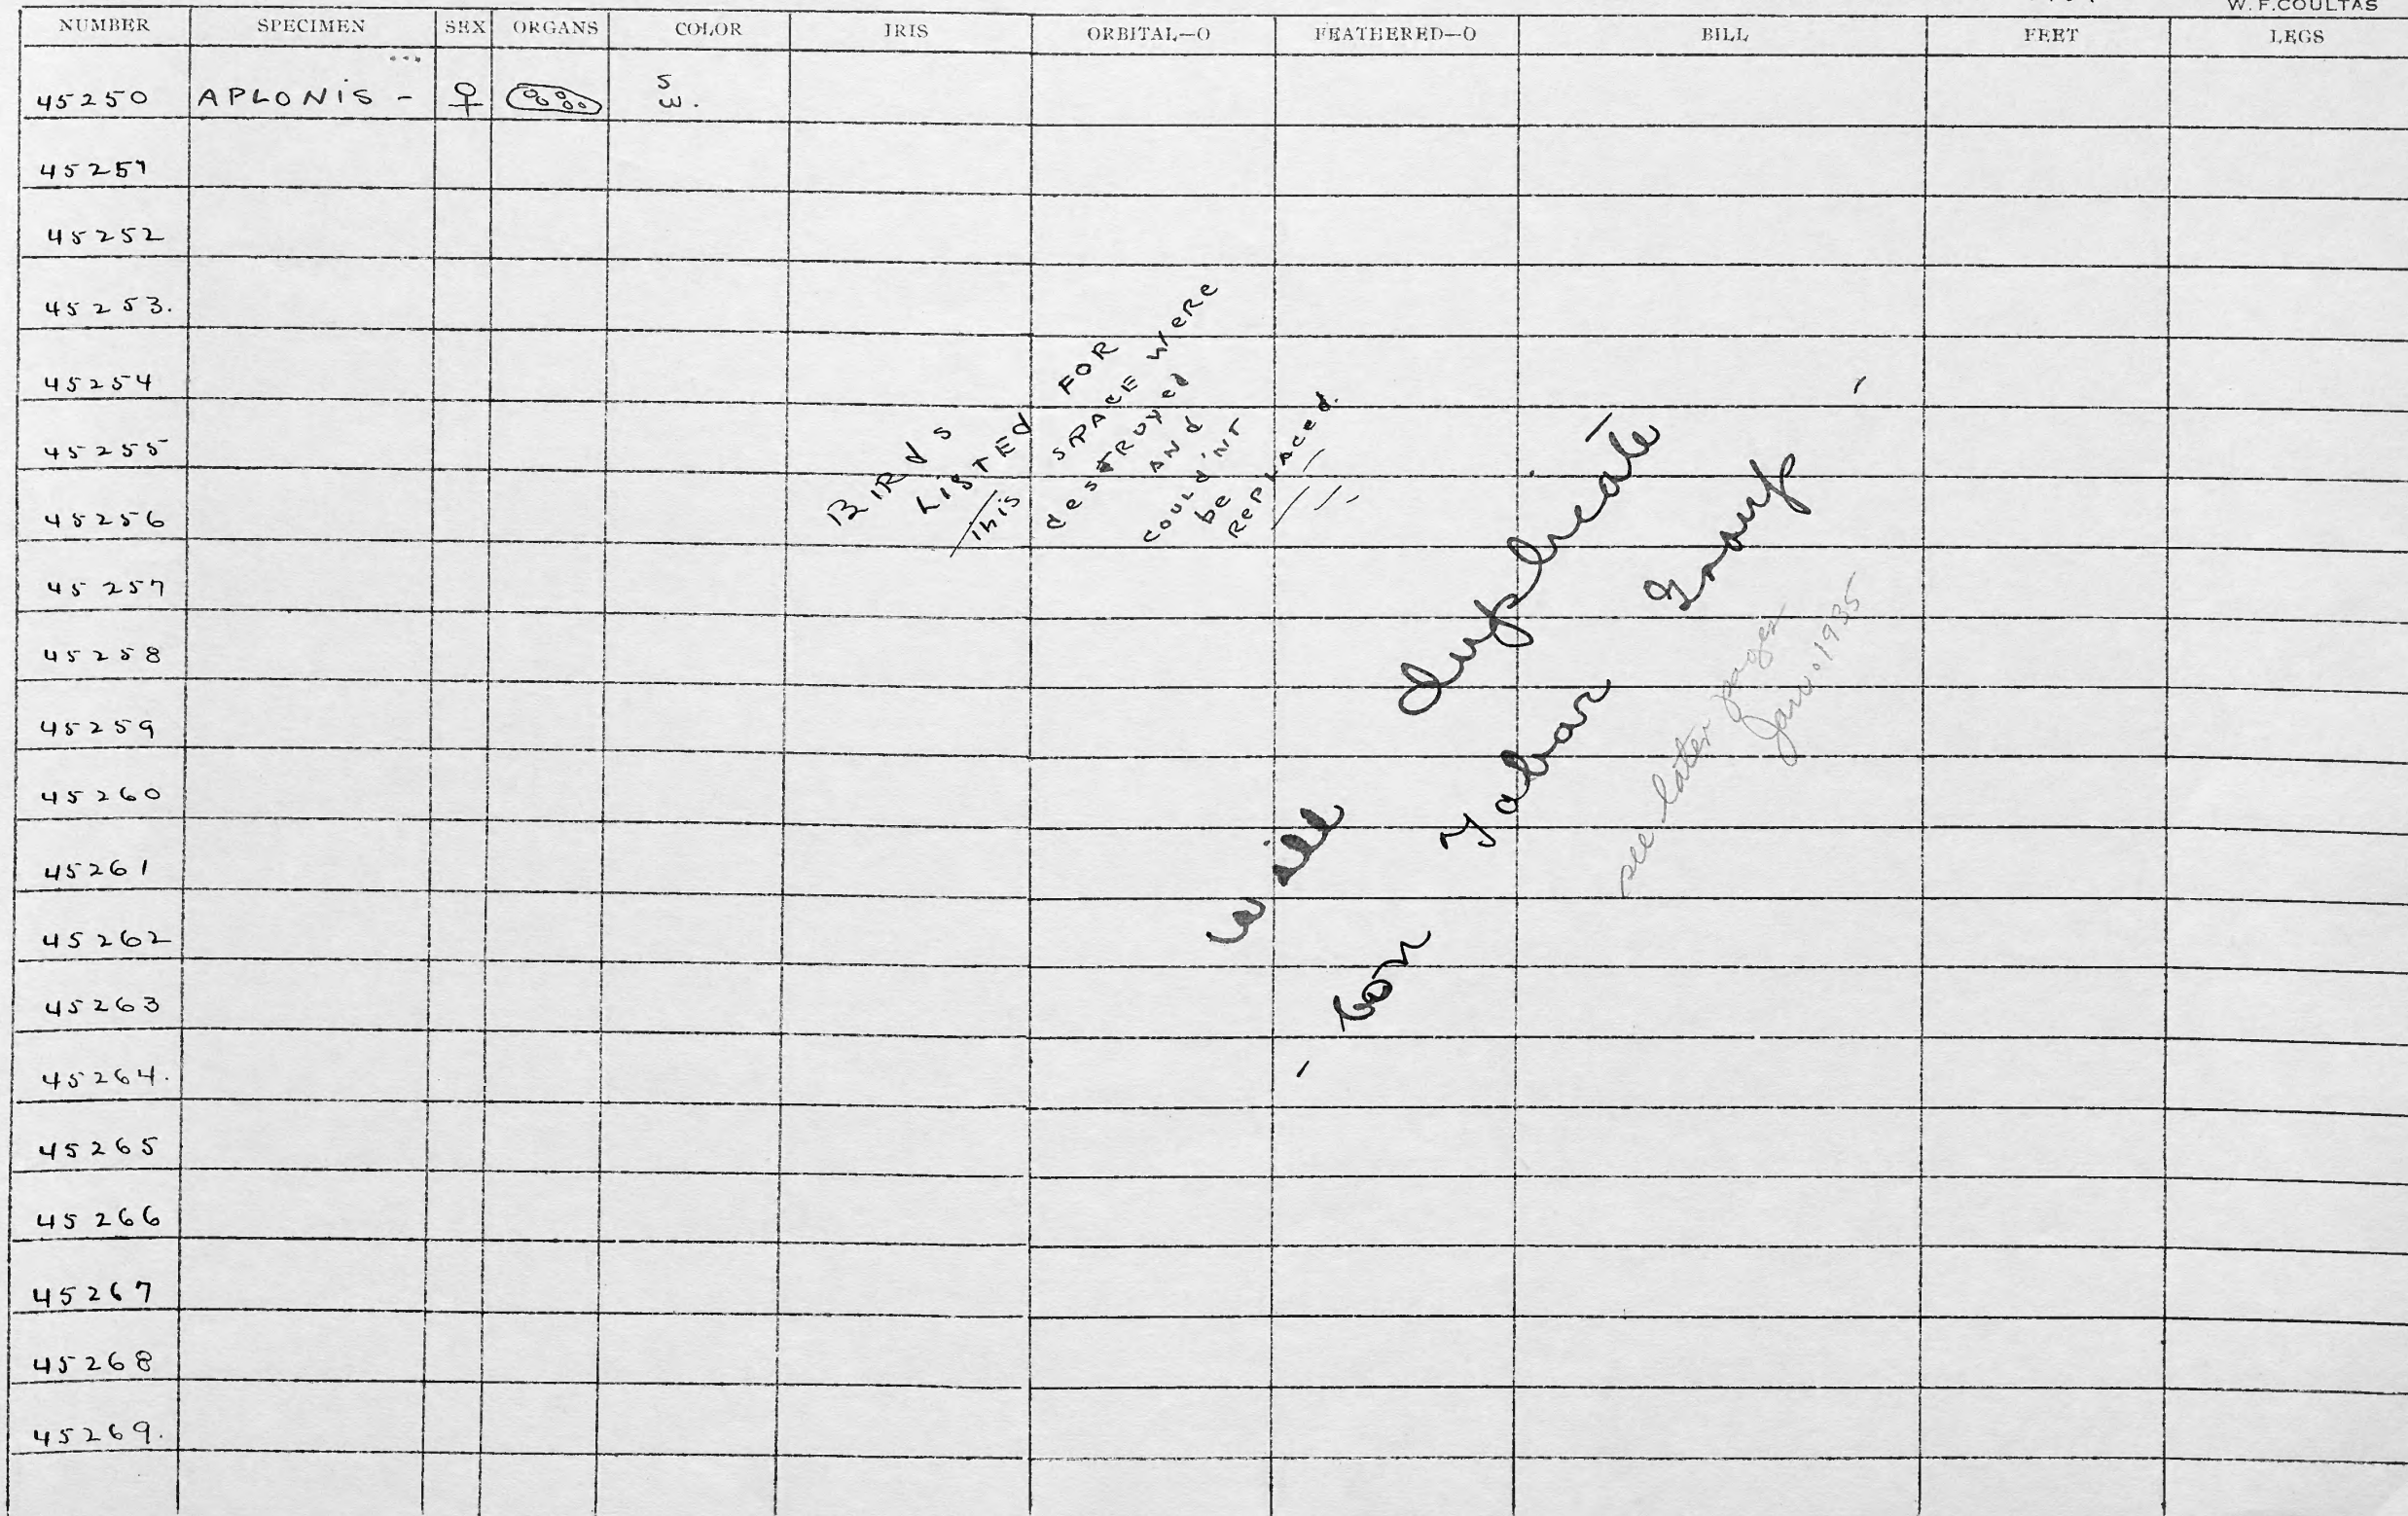 W. F. COULTAS
NUMBER SPECIMEN SEX ORGANS COLOR IRIS ORBITAL—O FEATHERED—O BILL FEET LEGS
45250 APLONIS - ♀ S W.
45251
45252
45253.
45254
45255
45256
45257
45258
45259
45260
45261
45262
45263
45264.
45265
45266
45267
45268
45269.
BIRds LISTEd FOR
this SPACE WERE
desTROYed
ANd
COULd'NT
be
RePLACed.
will duplicate
on Tabar Group
see later pages
Jan. 1935